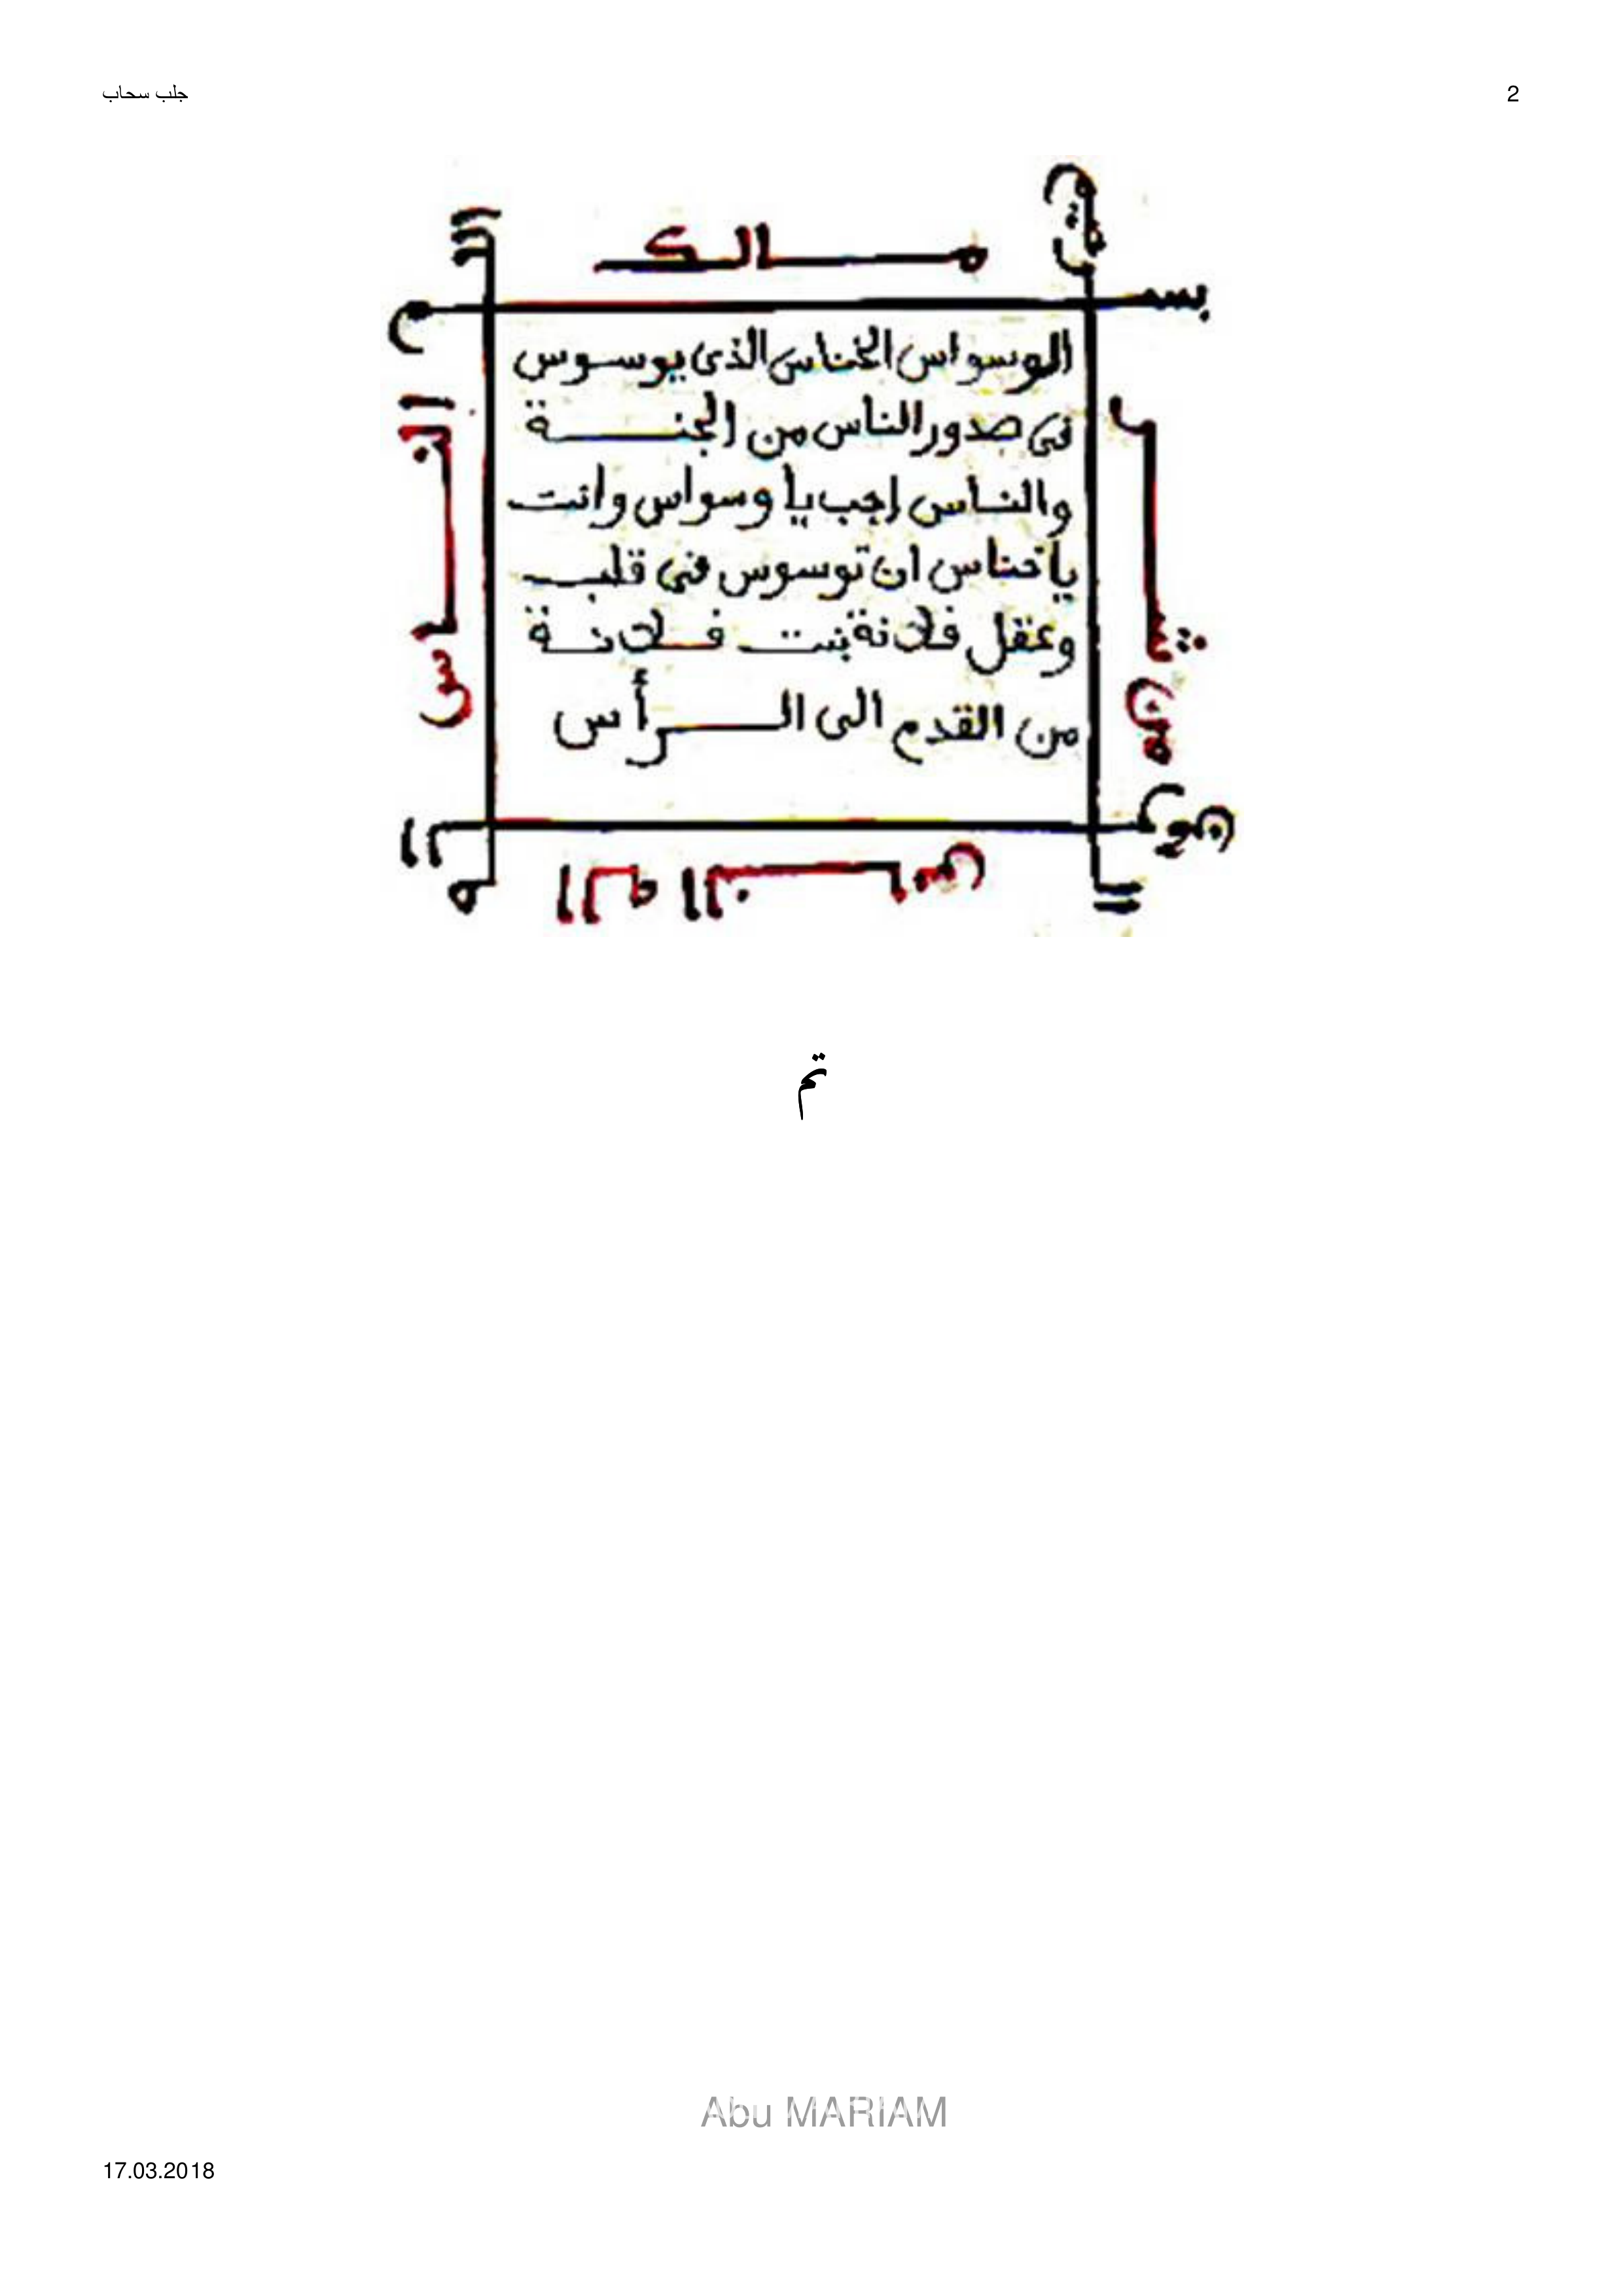 جلب سحاب
2
مالك
بسم
الوسواس الخناس الذى يوسوس
فى صدور الناس من الجنة
والناس اجب يا وسواس وانت
يا خناس ان توسوس فى قلب
وعقل فلانة بنت فلانة
من القدم الى الرأس
الناس
من شر
اله الناس
تم
Abu MARIAM
17.03.2018